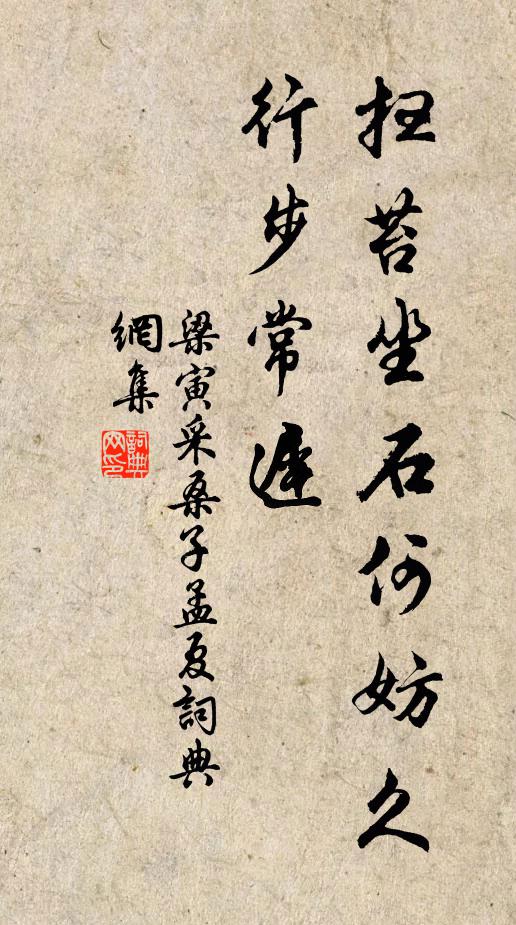 扫苔坐石何妨久
行步常遲
梁寅采桑子孟夏詞典
網集
詞典
网印